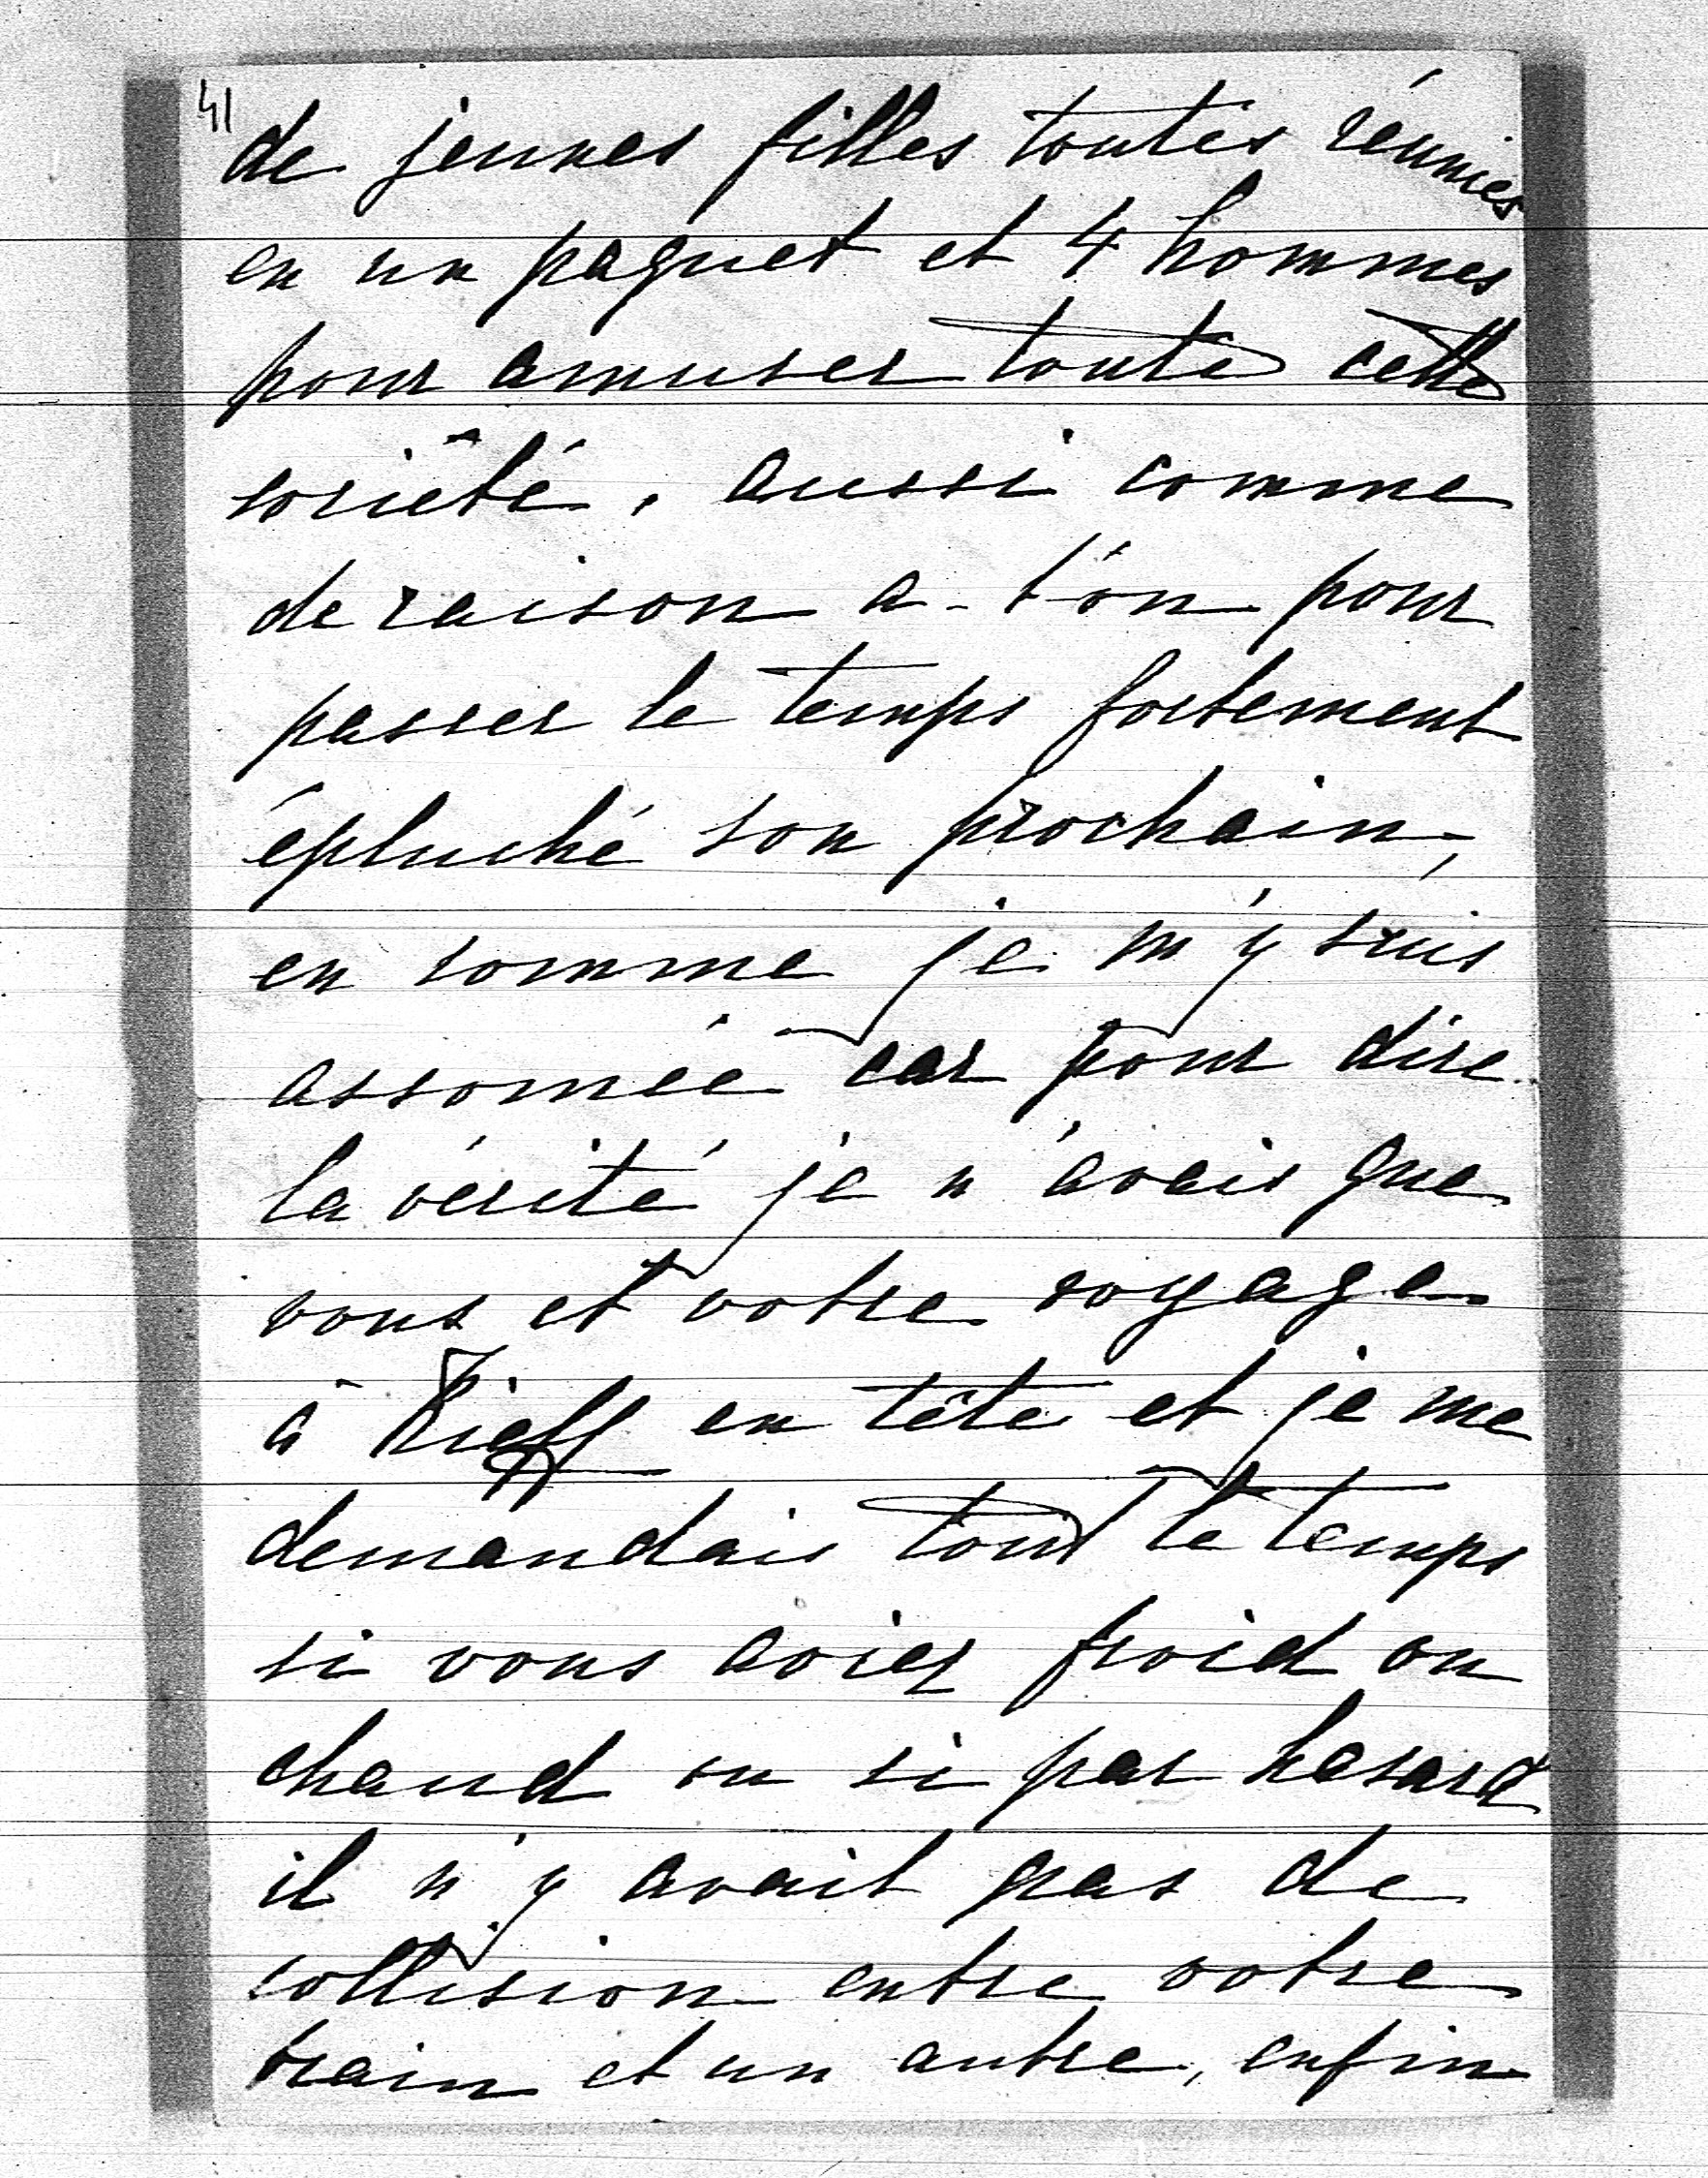 41
de jeunes filles toutes réunies
en un paquet et 4 hommes
pour amuser toute cette
sociêté, aussi comme
de raison a-t'on pour
passer le temps fortement
épluché son prochain,
en somme je m'y suis
assomée car pour dire
la vérité je n'avais que
vous et votre voyage
à Kieff en tête et je me
demandais tout le temps
si vous aviez froid ou
chaud ou si par hasard
il n'y avait pas de
collision entre votre
train et un autre, enfin